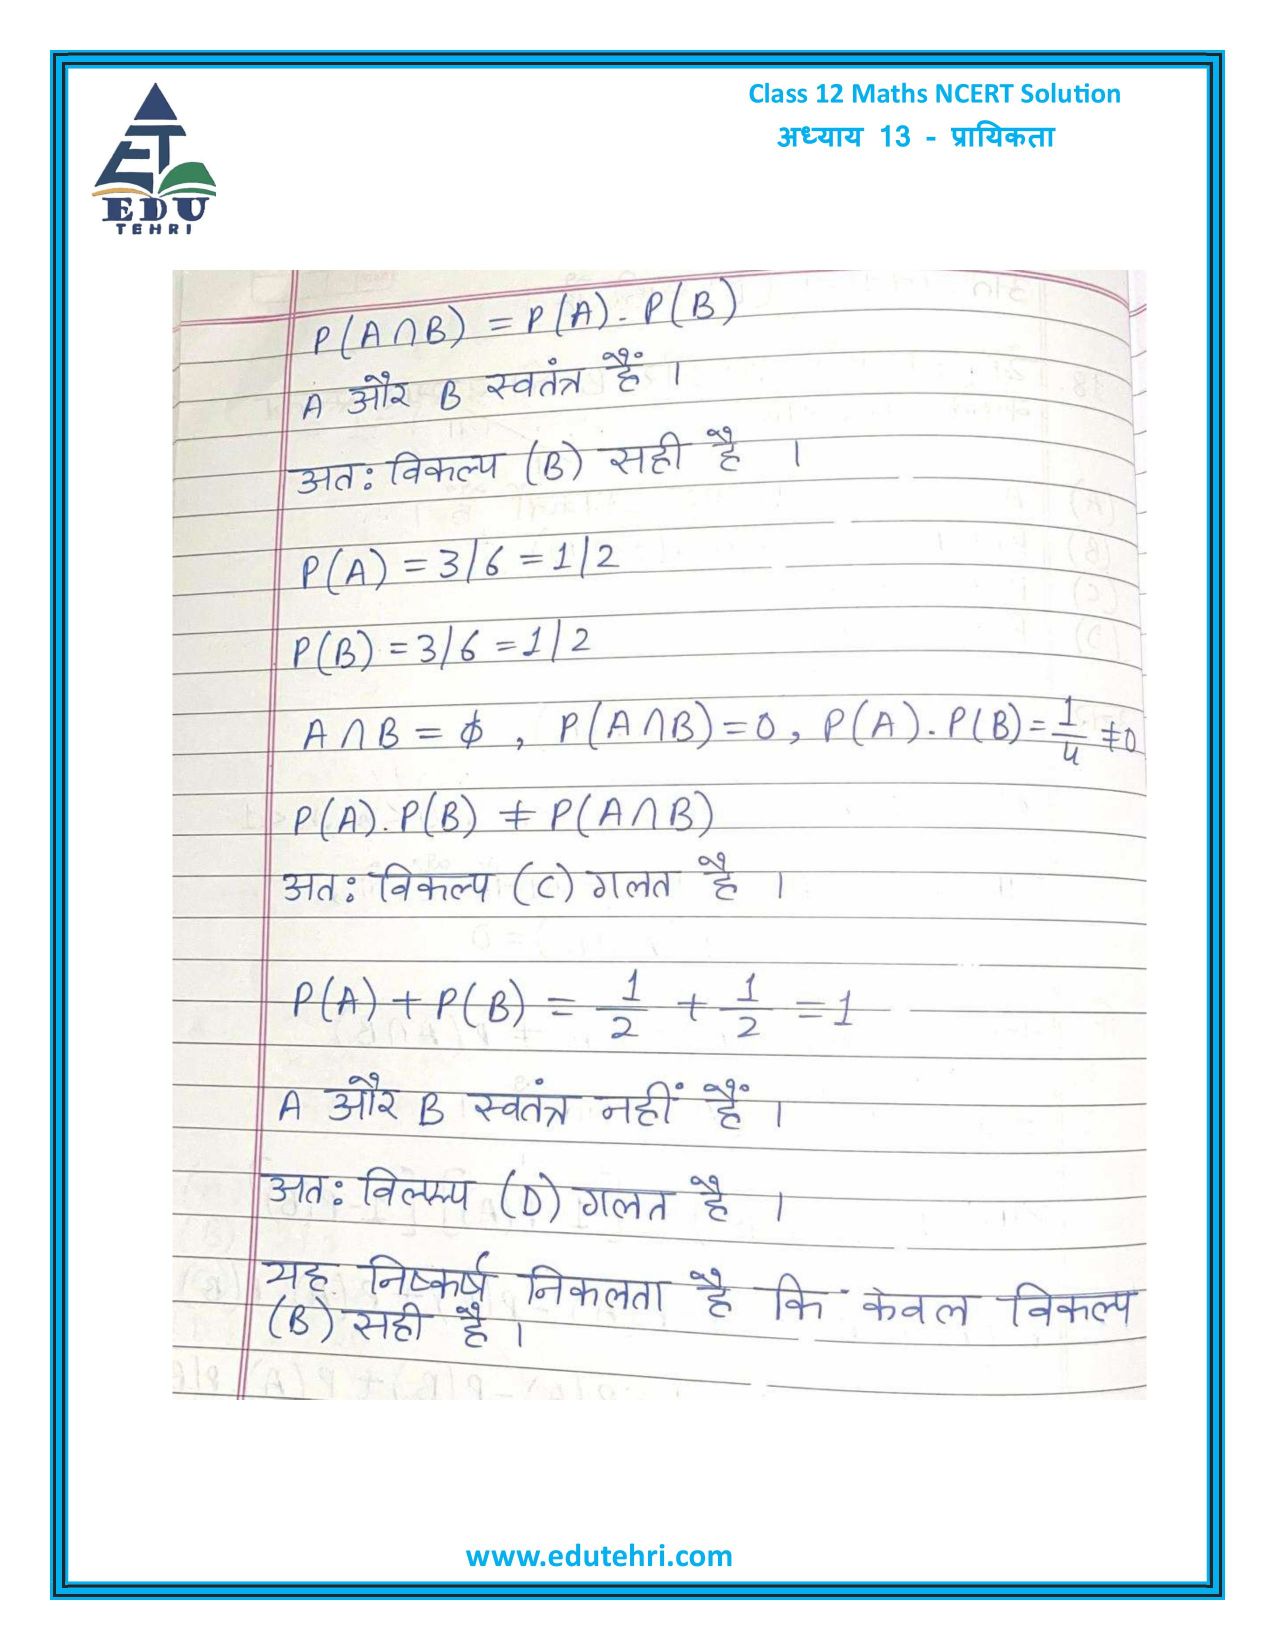 Class 12 Maths NCERT Solution
अध्याय 13 - प्रायिकता
EDU
TEHRI
P(A∩B) = P(A). P(B)
A और B स्वतंत्र हैं ।
अतः विकल्प (B) सही है ।
P(A) = 3/6 = 1/2
P(B) = 3/6 = 1/2
A∩B = ϕ , P(A∩B) = 0, P(A). P(B) = 1/4 ≠ 0
P(A). P(B) ≠ P(A∩B)
अतः विकल्प (C) गलत है ।
P(A) + P(B) = 1/2 + 1/2 = 1
A और B स्वतंत्र नहीं हैं ।
अतः (D) गलत है ।
यह निष्कर्ष निकलता है कि केवल विकल्प
(B) सही है ।
www.edutehri.com